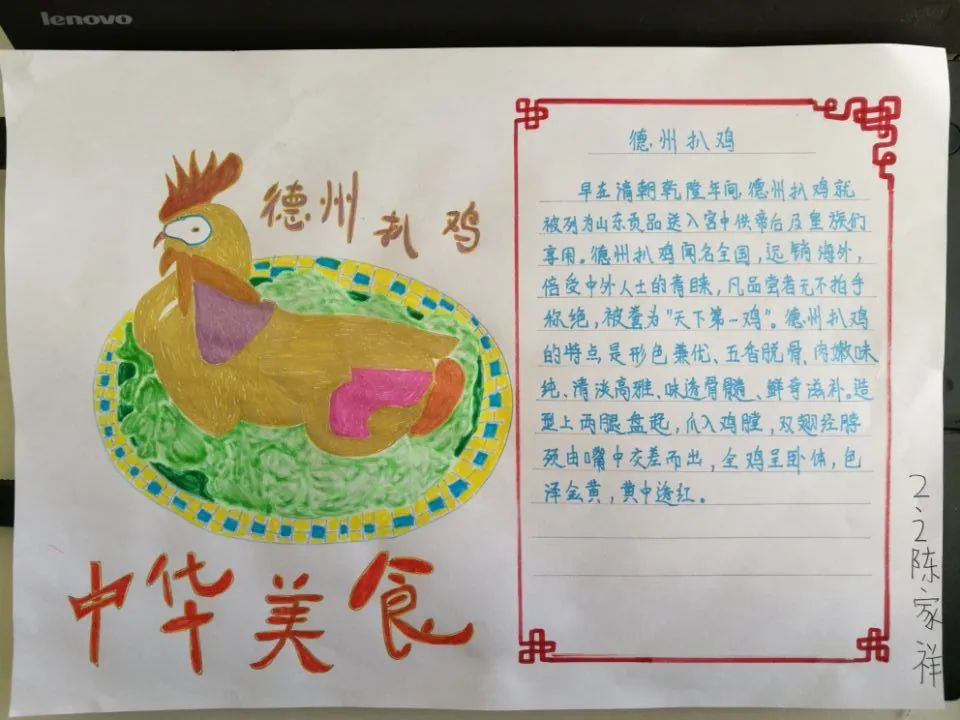 lenovo
德州扒鸡
中华美食
德州扒鸡
早在清朝乾隆年间,德州扒鸡就
被列为山东贡品送入宫中供帝后及皇族们
享用。德州扒鸡闻名全国,远销海外,
倍受中外人士的青睐,凡品尝者无不拍手
称绝,被誉为"天下第一鸡"。德州扒鸡
的特点是形色兼优、五香脱骨、肉嫩味
纯、清淡高雅、味透骨髓、鲜奇滋补。造
型上两腿盘起,爪入鸡膛,双翅经脖
颈由嘴中交差而出,全鸡呈卧体,色
泽金黄,黄中透红。
2.2陈家祥